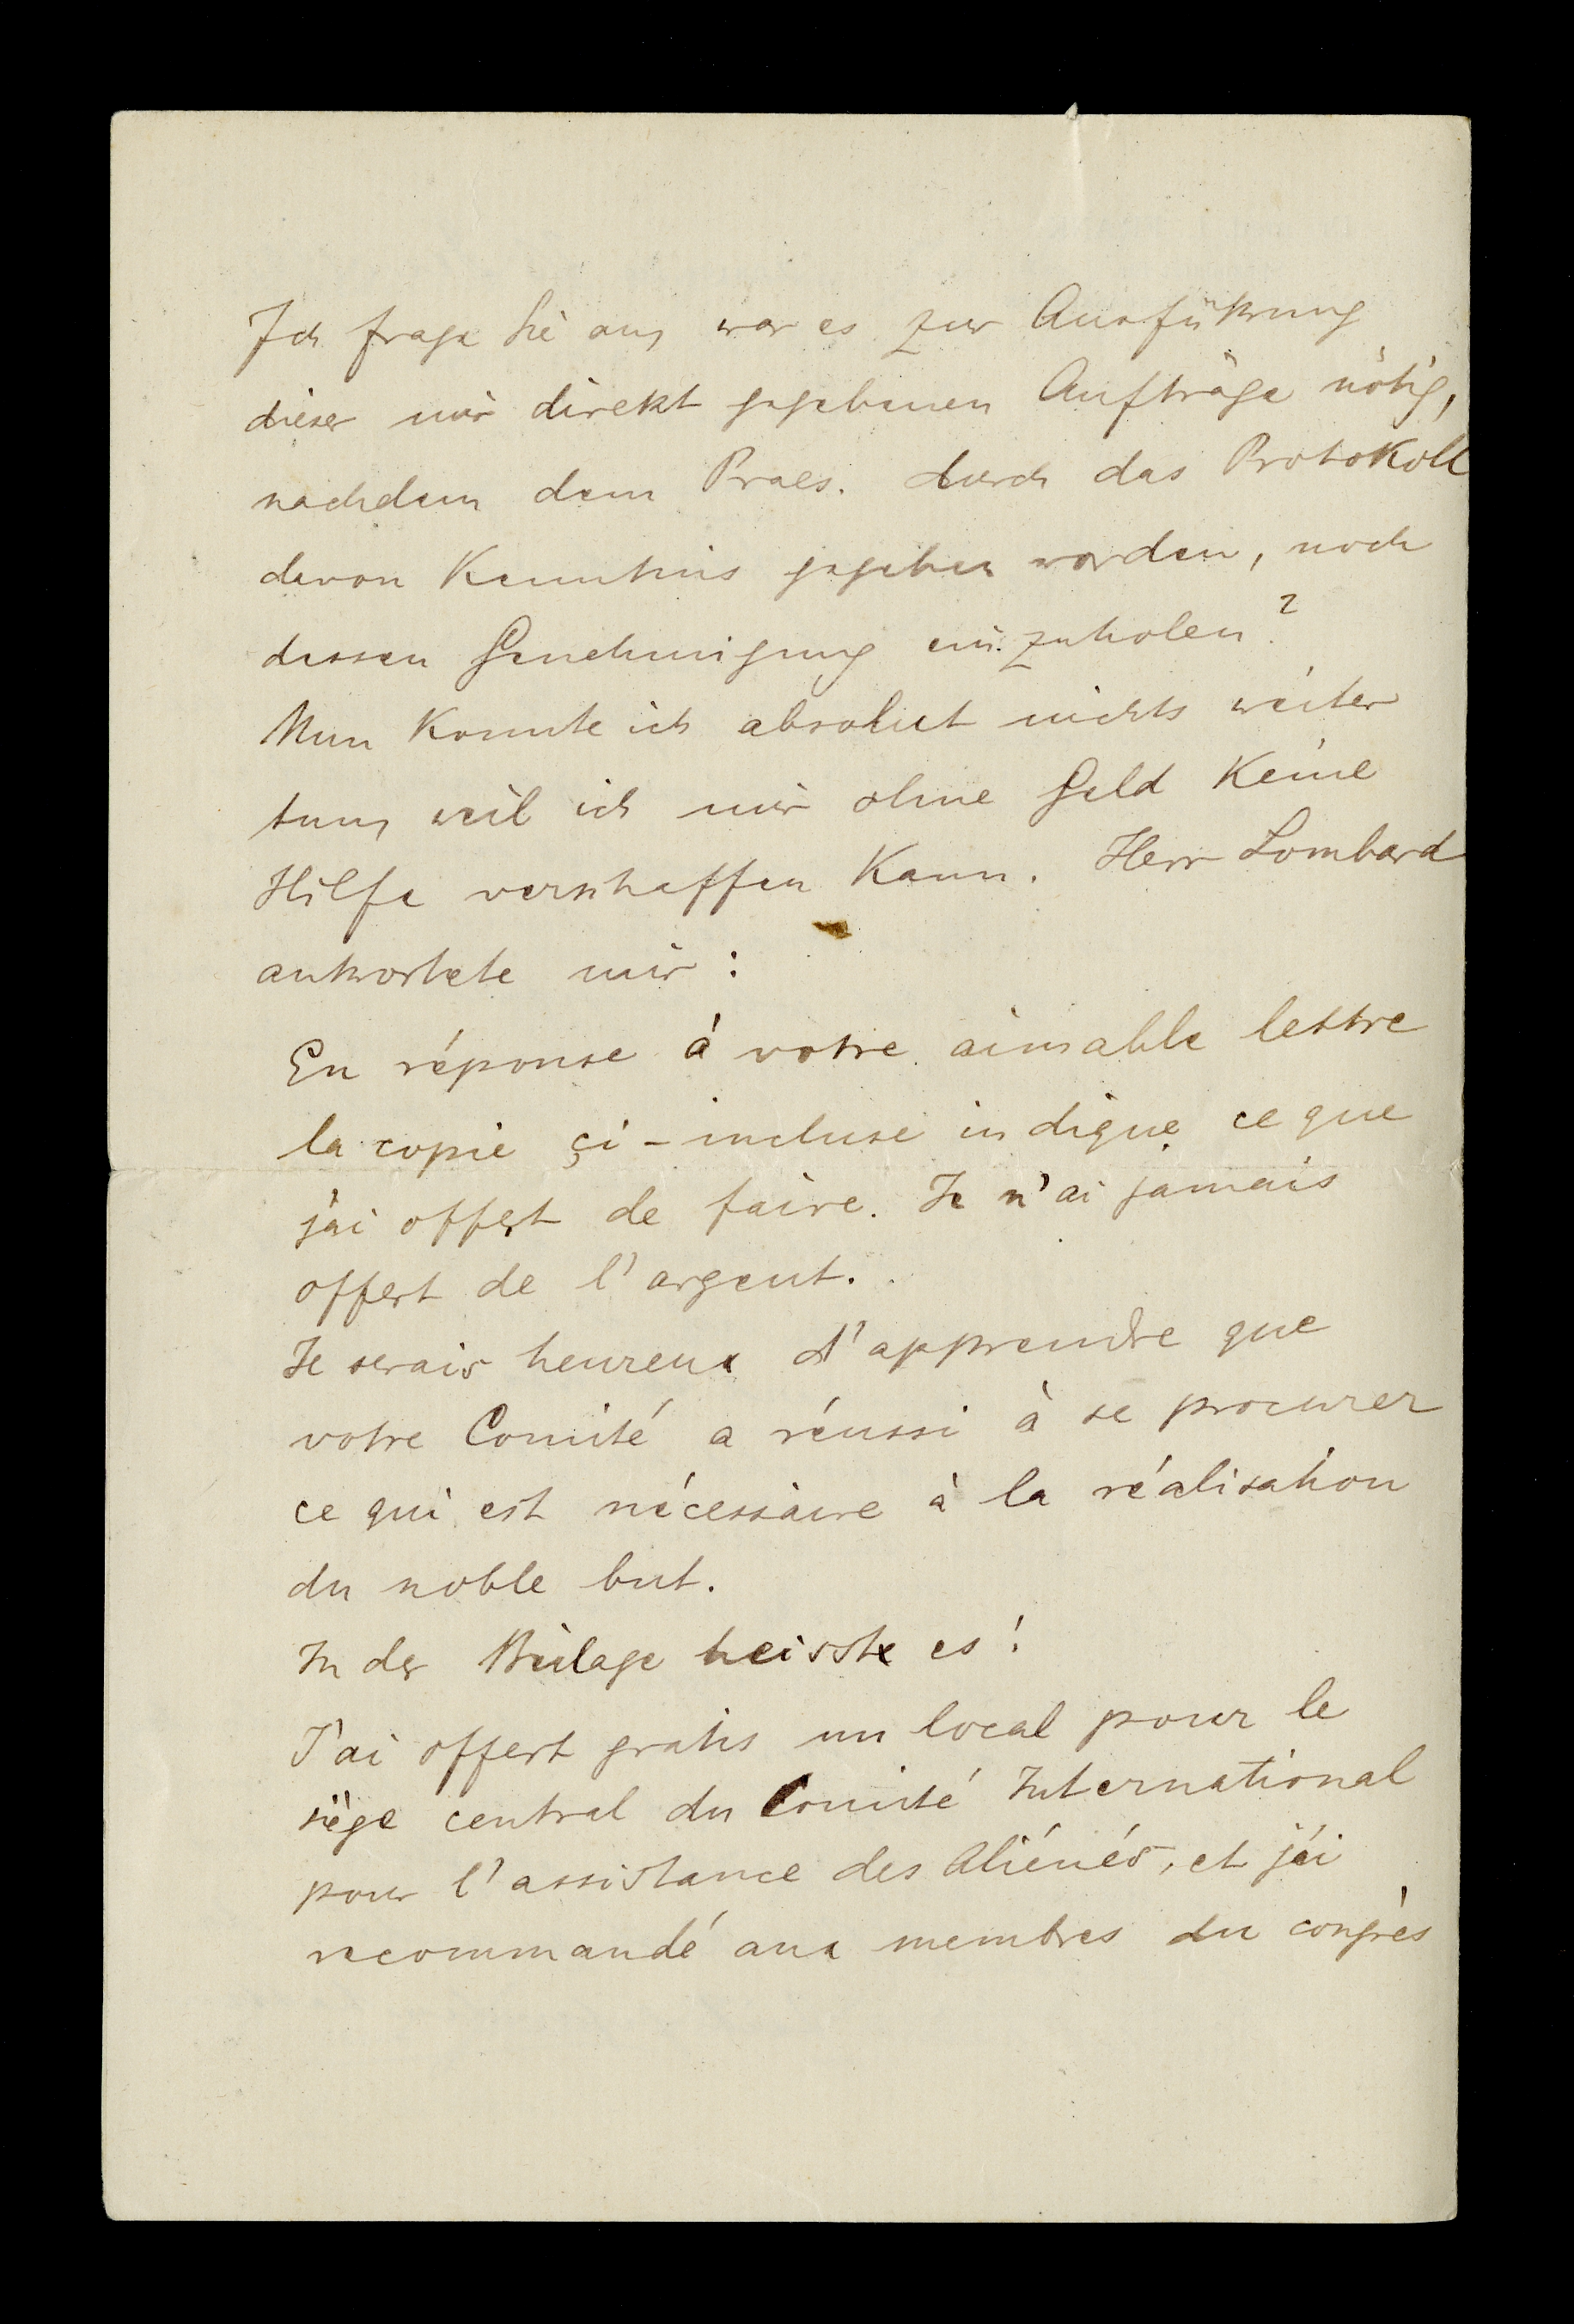 Ich frage Sie an, war es zur Ausführung
dieser mir direkt gegebenen Aufträge nötig,
nachdem dem Praes. durch das Protokoll
davon Kenntnis gegeben worden, noch
dessen Genehmigung einzuholen?
Nun konnte ich absolut nichts weiter
tun, weil ich mir ohne Geld Keine
Hilfe verschaffen Kann. Herr Lombard
antwortete mir :
En réponse á votre aimable lettre
la copie çi-incluse indique ce que
j'ai offert de faire. Je n'ai jamais
offert de l'argent.
Je serais heureux d'apprendre que
votre Comité a réussi à se procurer
ce qui est nécessaire à la réalisation
du noble but.
In der Beilage heisst es:
J'ai offert gratis un local pour le
siège central du Comité International
pour l'assistance des Aliénés, et j'ai
recommandé aux membres du congrès